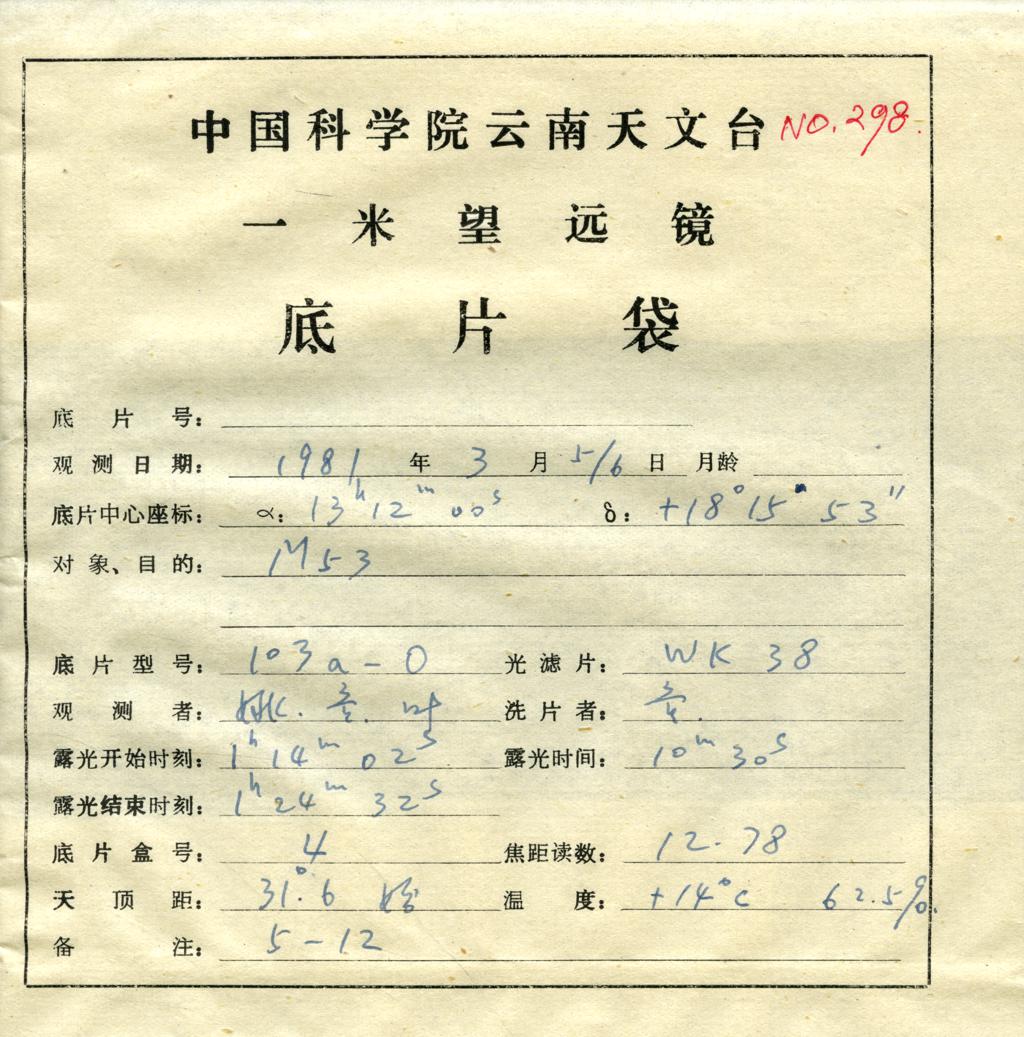 中国科学院云南天文台 NO.298.
一米望远镜
底片袋
底片号：
观测日期： 1981 年 3 月 5/6 日 月龄
底片中心座标： α： 13h 12m 00s δ： +18° 15' 53"
对象、目的： M53
底片型号： 103a-O 光滤片： WK 38
观测者： 姚. 叶 洗片者：
露光开始时刻： 1h 14m 02s 露光时间： 10m 30s
露光结束时刻： 1h 24m 32s
底片盒号： 4 焦距读数： 12.78
天顶距： 31°.6 始 温度： +14°C 62.5%.
备注： 5-12